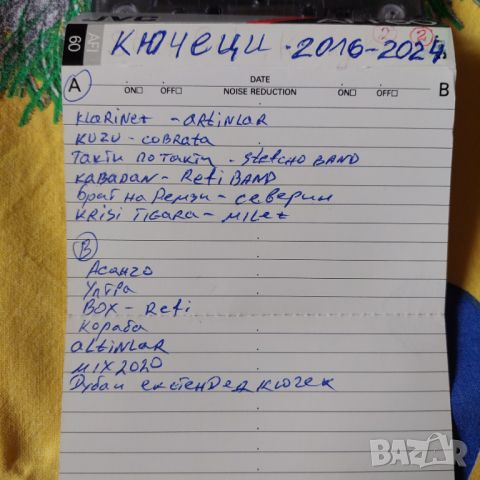 JVC
60
AF
КЮЧЕЦИ - 2016-2024
2 2
A DATE B
ON OFF NOISE REDUCTION ON OFF
KLARINET - ALTINLAR
KUZU - COBRATA
ТАКТИ ПО ТАКТИ - STETCHO BAND
KABADAN - Refi BAND
Брат на Ремзи - Северин
KRISI TIGARA - MILET
B
Асанго
Ултра
BOX - Refi
Кораба
ALTINLAR
MIX 2020
Дубаи екстендед кючек
BAZAR